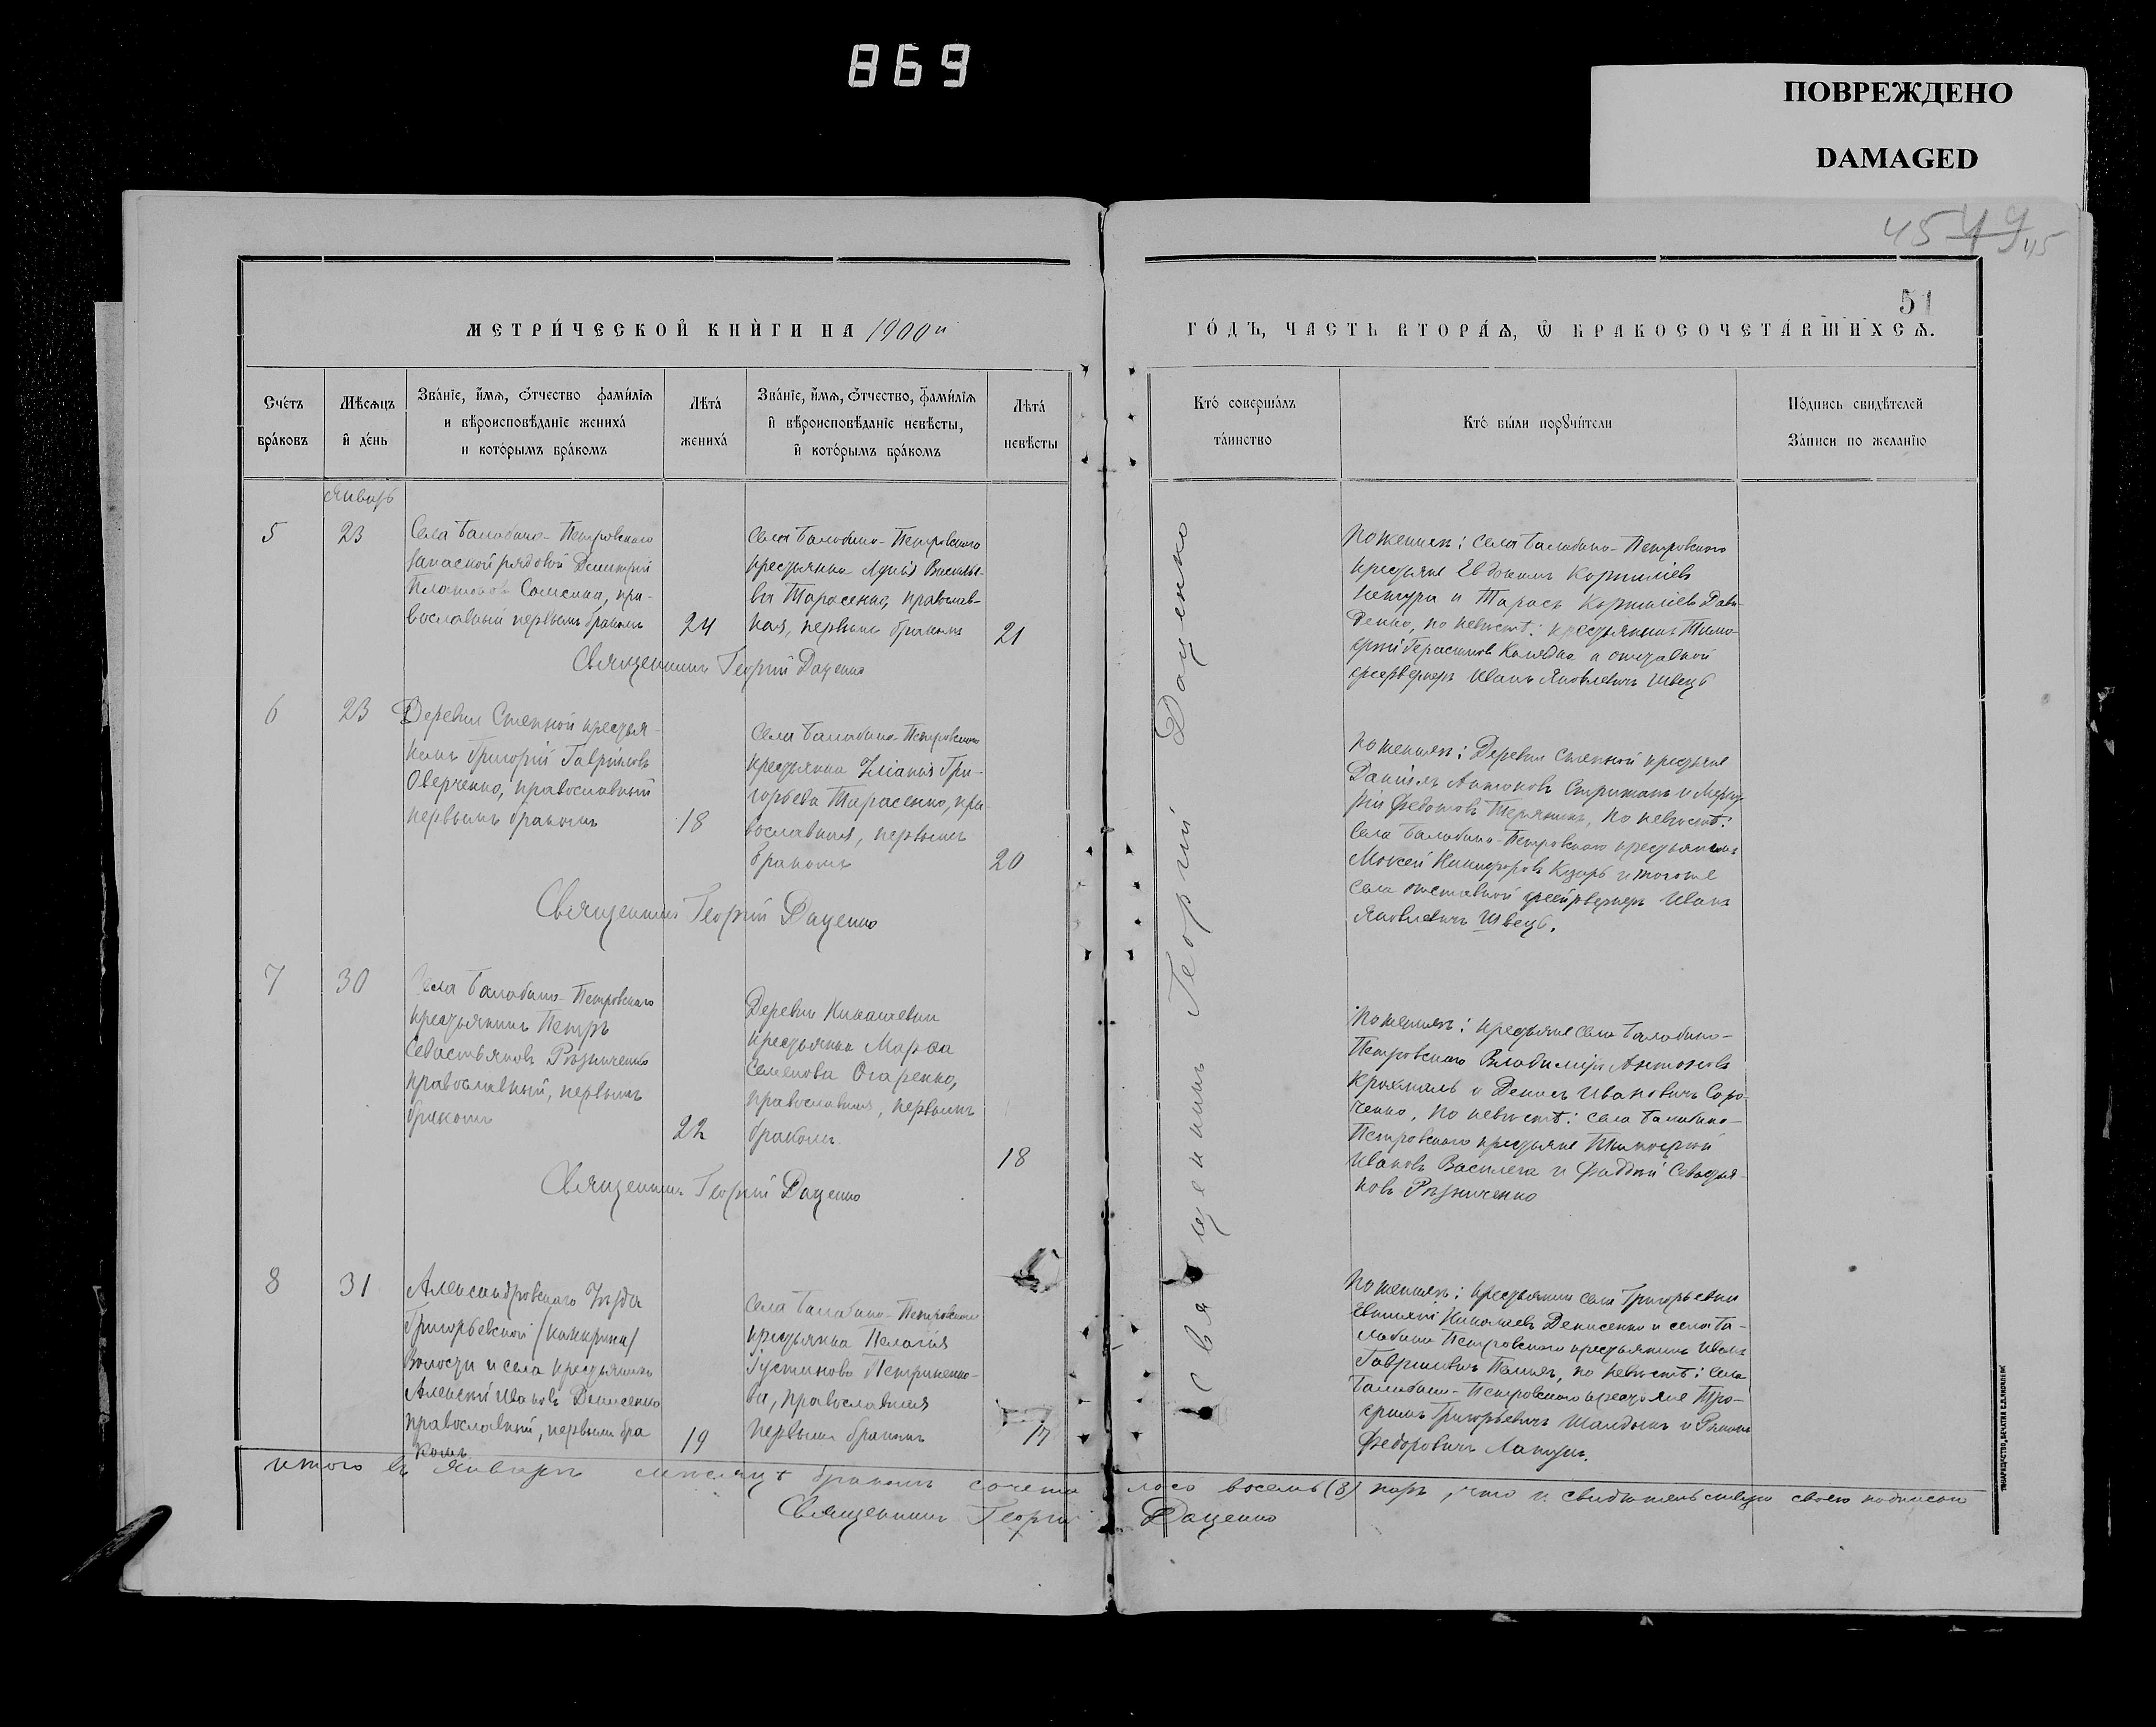 869
ПОВРЕЖДЕНО
DAMAGED
45 49 45
51
МЕТРИ́ЧЕСКОЙ КНИ̑ГИ НА 1900й
ГО́ДЪ, ЧАСТЬ ВТОРА́Ѧ, Ѿ БРАКОСОЧЕТА́ВШИХСѦ.
Сче́тъ
бра́ковъ
Мѣ́сѧцъ
и҆ де́нь
Зва́нїе, и҆́мѧ, ѻ҆́тчество фами́лїѧ
и вѣроисповѣ́данїе жениха́
и кото́рымъ бра́комъ
Лѣта́
жениха́
Зва́нїе, и҆́мѧ, ѻ҆́тчество, фами́лїѧ
и҆ вѣроисповѣ́данїе невѣ́сты,
и҆ кото́рымъ бра́комъ
Лѣта́
невѣ́сты
Кто́ соверша́лъ
та́инство
Кто́ бы́ли порꙋчи́тели
По́дпись свидѣ́телей
За́писи по жела́нїю
Январь
5
23
Села Балабино-Петровскаго
запасной рядовой Димитрій
Платоновъ Самсика, пра-
вославный первымъ бракомъ
24
Села Балабино-Петровскаго
крестьянка Васильє-
ва Тарасенко, православ-
ная, первымъ бракомъ
21
Священникъ Георгій Даценко
По женихѣ: села Балабино-Петровскаго
крестьяне Евдокимъ Корниліевъ
и Тарасъ Корниліевъ Дави-
денко, по невѣстѣ: крестьянинъ Тимо-
фей Герасимовъ Коляда и отставной
фейерверкеръ Иванъ Яковлевичъ Швецъ
6
23
Деревни Степной крестья-
нинъ Григорій Гавріиловъ
Оверченко, православный
первымъ бракомъ
18
Села Балабино-Петровскаго
крестьянка Уліанія Гри-
горьева Тарасенко, пра-
вославная, первымъ
бракомъ
20
Священникъ Георгій Даценко
По женихѣ: Деревни Степной крестьяне
Даніилъ Антоновъ Стрижакъ и Мерку-
рій Федотовъ, по невѣстѣ:
Села Балабино-Петровскаго крестьянинъ
Моисей Никифоровъ и тогоже
села отставной фейерверкеръ Иванъ
Яковлевичъ Швецъ.
7
30
Села Балабино-Петровскаго
крестьянинъ Петръ
Севастьяновъ Рѣзниченко
православный, первымъ
бракомъ
22
Деревни
крестьянка Марѳа
Семенова Огаренко,
православная, первымъ
бракомъ
18
Священникъ Георгій Даценко
По женихѣ: крестьяне села Балабино-
Петровскаго Владиміръ Антоновъ
Крохмаль и Денисъ Ивановичъ Соро-
ченко, по невѣстѣ: села Балабино-
Петровскаго крестьяне Тимофей
Ивановъ Василега и Фаддей Севастья-
новъ Рѣзниченко
8
31
Александровскаго Уѣзда
Григорьевской
Волости и села крестьянинъ
Алексѣй Ивановъ Денисенко
православный, первымъ бра-
комъ
19
Села Балабино-Петровскаго
крестьянка Пелагія
Іустинова Петриненко-
ва, православная
первымъ бракомъ
17
По женихѣ: крестьянинъ села Григорьевки
Евтихій Николаевъ Денисенко и села Ба-
лабино Петровскаго крестьянинъ Иванъ
Гавриловичъ, по невѣстѣ: села
Балабино-Петровскаго крестьяне Тро-
фимъ Григорьевичъ и Романъ
Федоровичъ Лапузъ.
Священникъ Георгій Даценко
Итого въ Январѣ мѣсяцѣ бракомъ сочета лось восемь (8) паръ, что и свидѣтельствую своею подписью
Священникъ Георгій Даценко